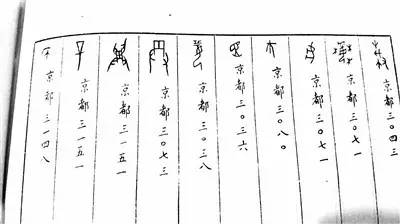 京都三〇四三
京都三〇七一
京都三〇七一
京都三〇八〇
京都三〇三六
京都三〇三八
京都三〇七三
京都三一五一
京都三一五一
京都三一四八